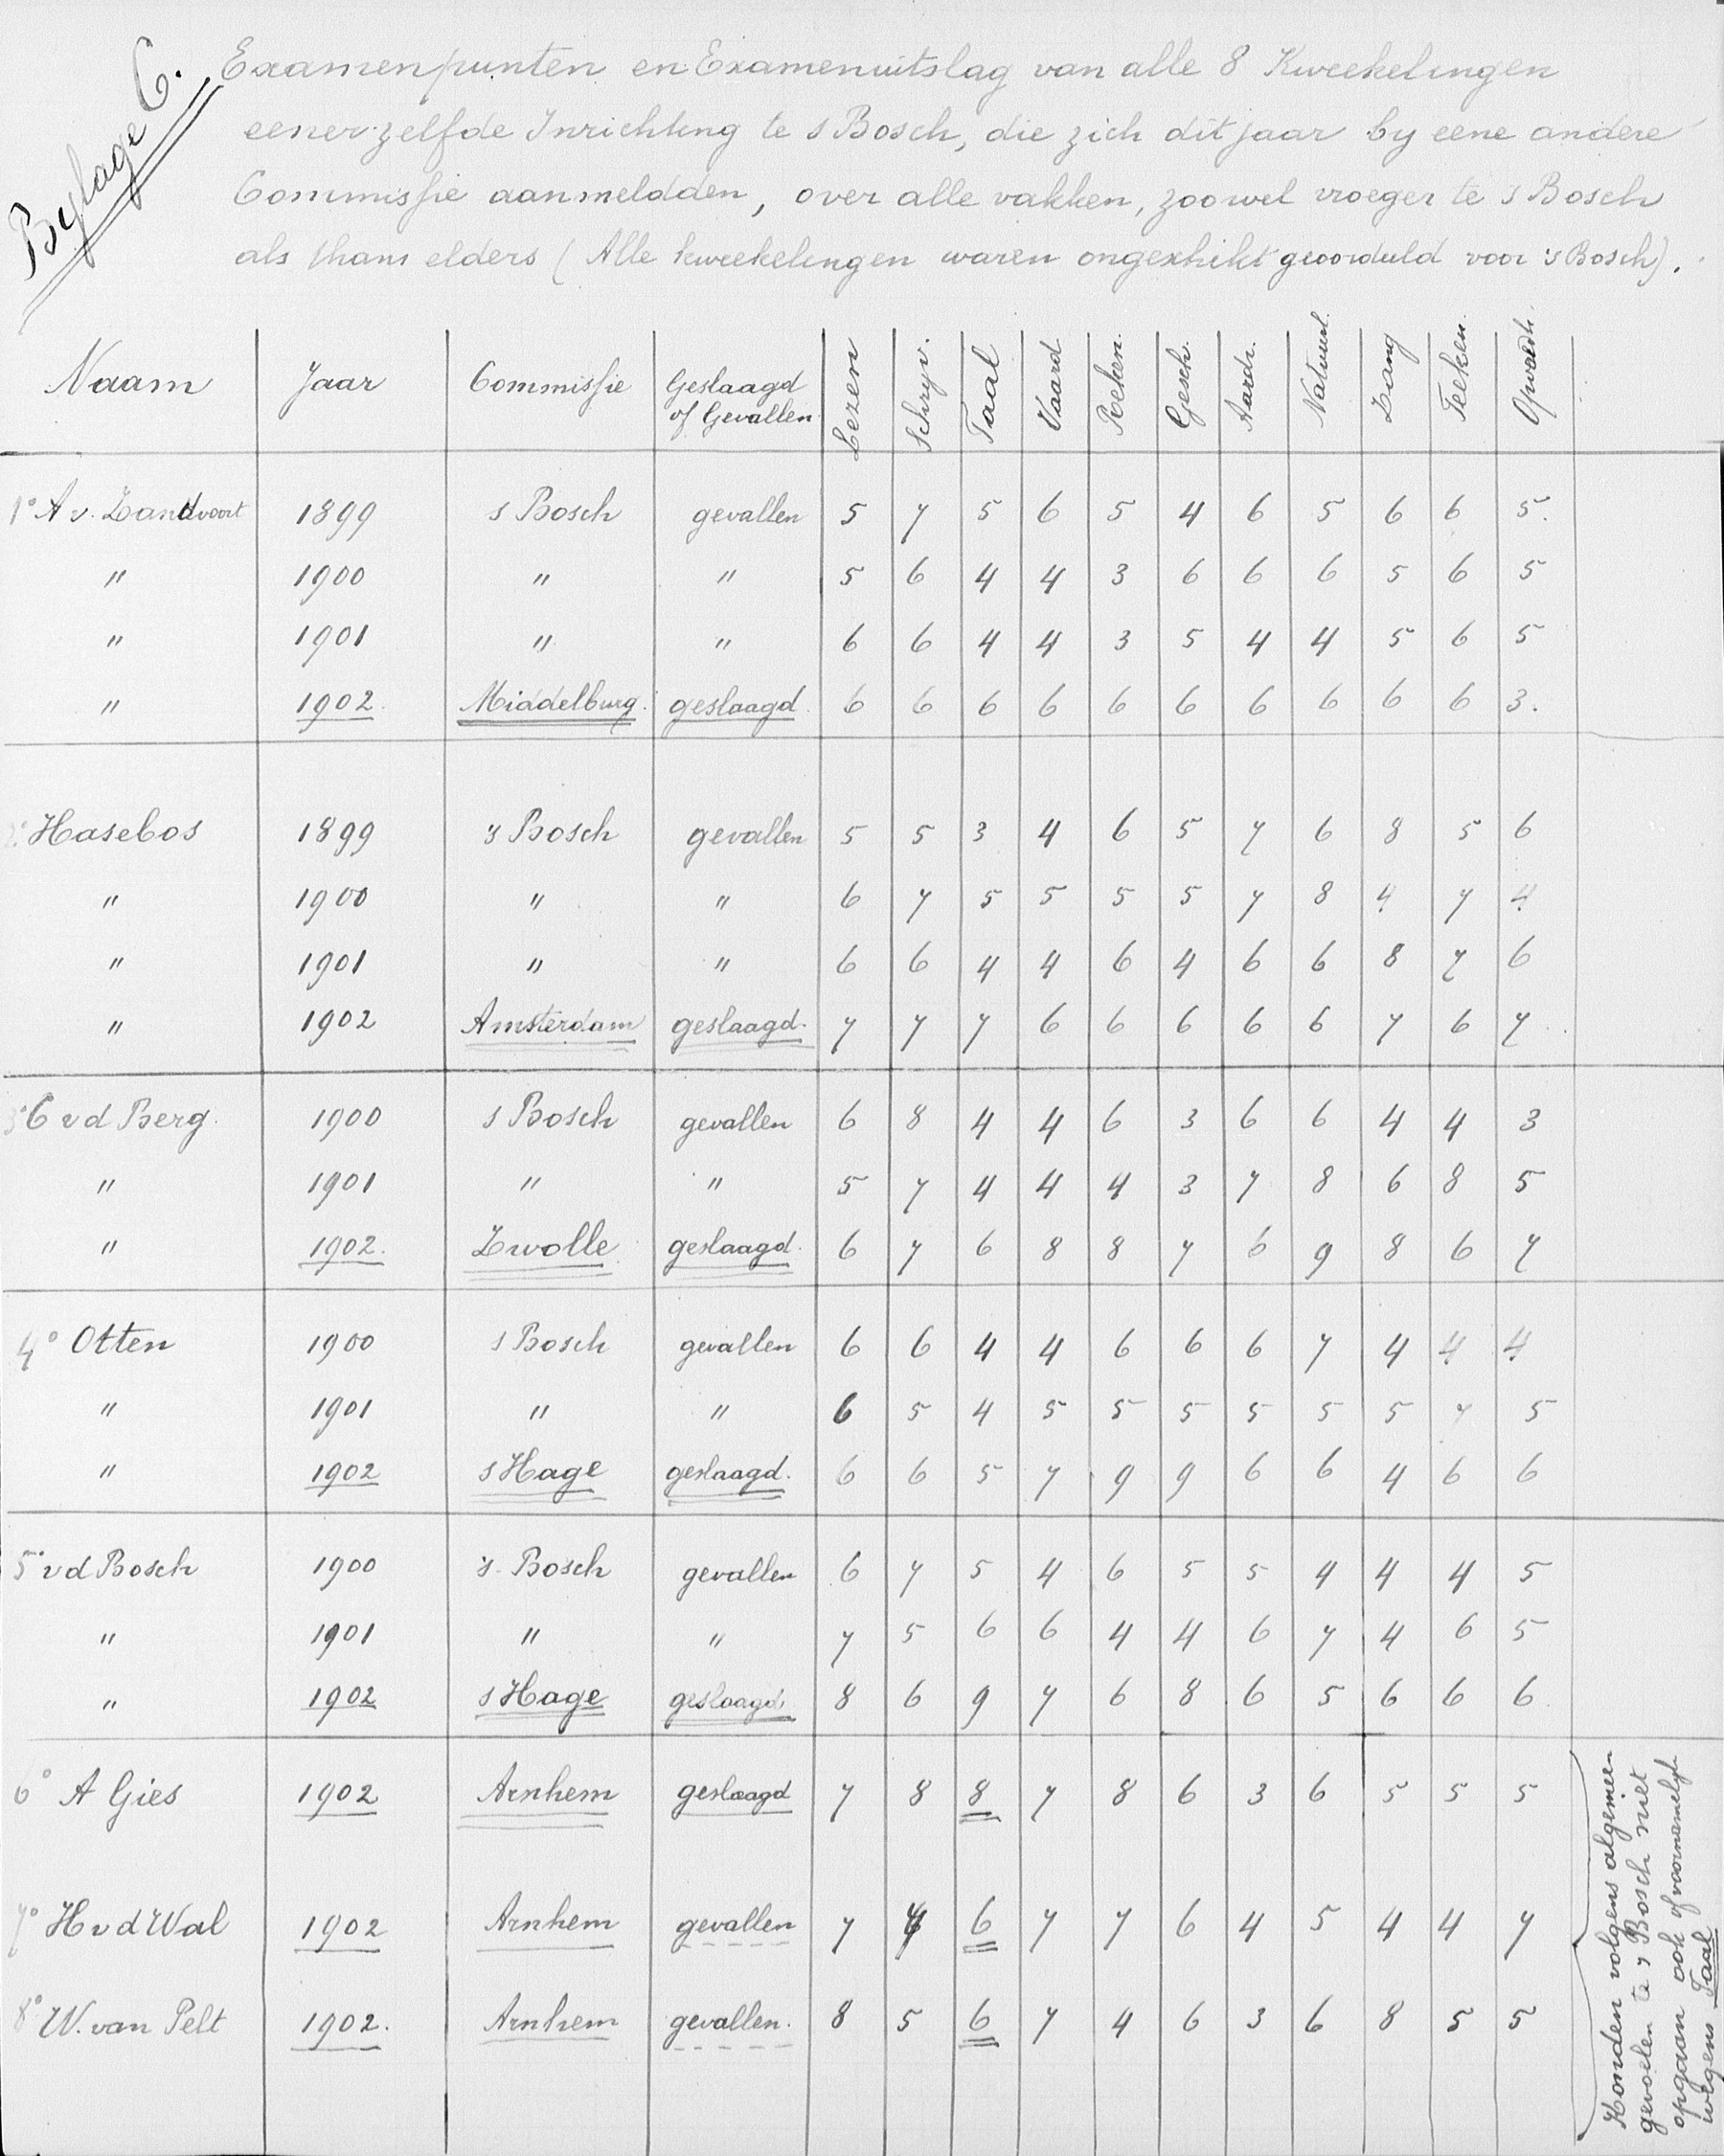 Bylage C.
Examenpunten en Examenuitslag van alle 8 Kweekelingen
eener zelfde Inrichting te s Bosch, die zich dit jaar by eene andere
Commissie aanmeldden, over alle vakken, zoowel vroeger te s Bosch
als thans elders (Alle kweekelingen waren ongeschikt geoordeeld voor 's Bosch).
Naam Jaar Commissie Geslaagd of Gevallen Lezen Schryv. Taal Vaard Reken. Gesch. Aardr. Natuurl. Zang Teeken. Opvoedk.
1° A v. Zandvoort 1899 s Bosch gevallen 5 7 5 6 5 4 6 5 6 6 5.
" 1900 " " 5 6 4 4 3 6 6 6 5 6 5
" 1901 " " 6 6 4 4 3 5 4 4 5 6 5
" 1902. Middelburg. geslaagd 6 6 6 6 6 6 6 6 6 6 3.
2° Hasebos 1899 's Bosch gevallen 5 5 3 4 6 5 7 6 8 5 6
" 1900 " " 6 7 5 5 5 5 7 8 4 7 4
" 1901 " " 6 6 4 4 6 4 6 6 8 7 6
" 1902 Amsterdam geslaagd. 7 7 7 6 6 6 6 6 7 6 7
3° C v d Berg. 1900 s Bosch gevallen 6 8 4 4 6 3 6 6 4 4 3
" 1901 " " 5 7 4 4 4 3 7 8 6 8 5
" 1902. Zwolle geslaagd. 6 7 6 8 8 7 6 9 8 6 7
4° Otten 1900 s Bosch gevallen 6 6 4 4 6 6 6 7 4 4 4
" 1901 " " 6 5 4 5 5 5 5 5 5 7 5
" 1902 s Hage geslaagd. 6 6 5 7 9 9 6 6 4 6 6
5° v d Bosch 1900 's Bosch gevallen 6 7 5 4 6 5 5 4 4 4 5
" 1901 " " 7 5 6 6 4 4 6 7 4 6 5
" 1902 s Hage geslaagd. 8 6 9 7 6 8 6 5 6 6 6
6° A Gies 1902 Arnhem geslaagd 7 8 8 7 8 6 3 6 5 5 5
7° H v d Wal 1902 Arnhem gevallen 7 4 6 7 7 6 4 5 4 4 7
8° W. van Pelt 1902. Arnhem gevallen. 8 5 6 7 4 6 3 6 8 5 5
Konden volgens algemeen
gevoelen te s Bosch niet
opgaan ook of voornamelyk
wegens Taal